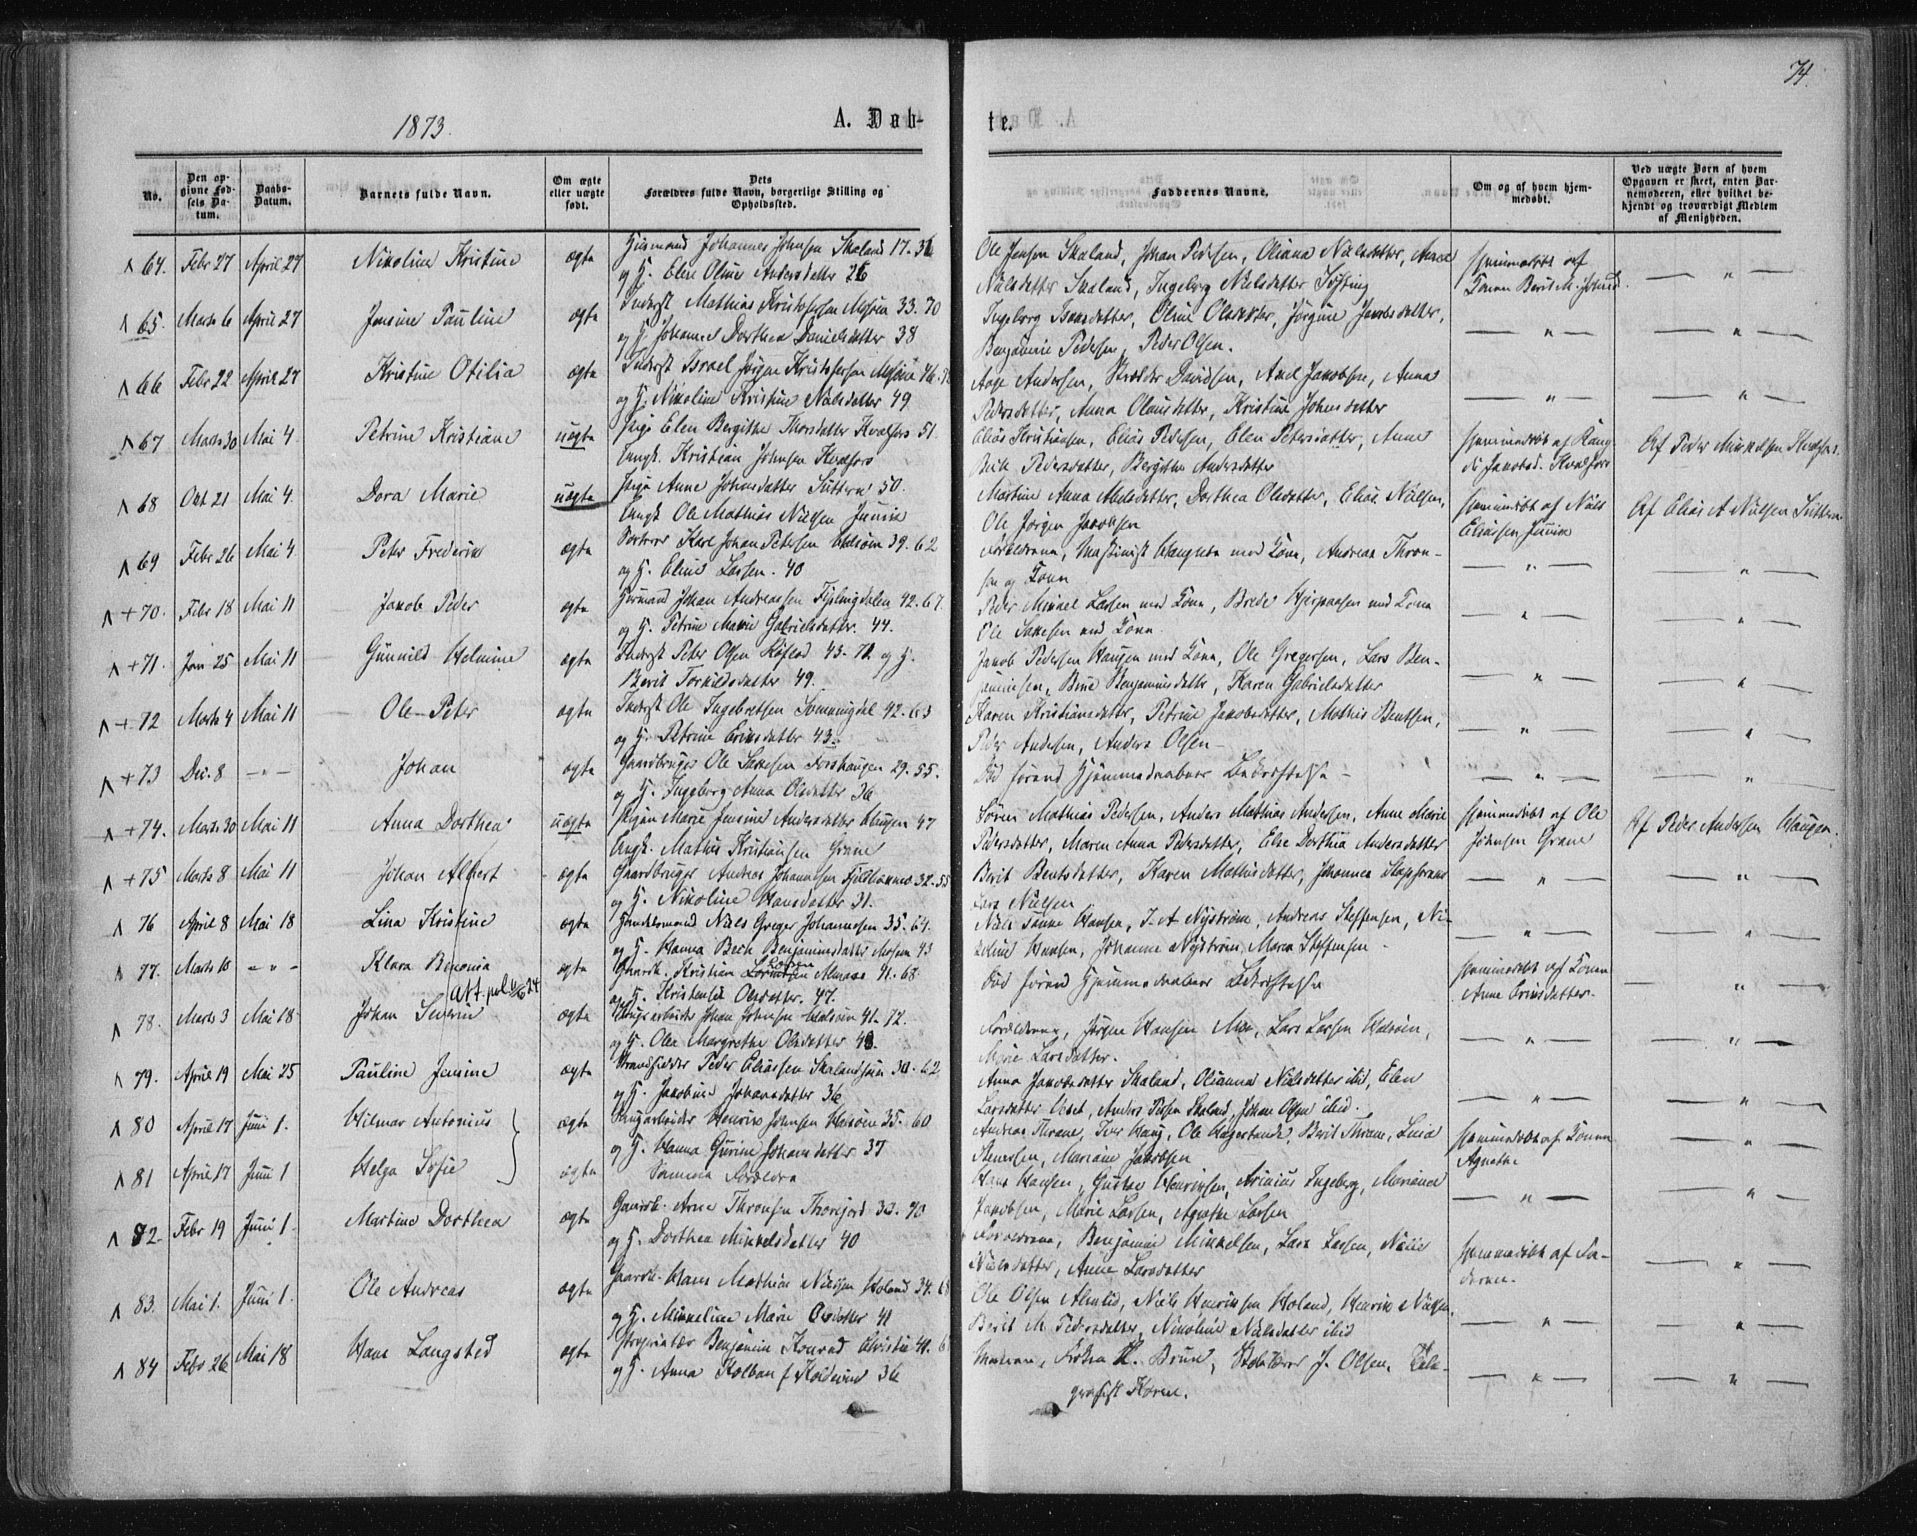 74.
1873.
A. Døb-
te.
No.
Den op-
givne Fød-
sels Da-
tum.
Daabs-
Datum.
Barnets fulde Navn.
Om ægte
eller uægte
født.
Dets
Forældres fulde Navn, borgerlige Stilling og
Opholdssted.
Faddernes Navne.
Om og af hvem hjem-
medøbt.
Ved uægte Børn af hvem
Opgaven er skeet, enten Bar-
nemoderen, eller hvilket be-
kjendt og troværdigt Medlem
af Menigheden.
64. Febr 27 April 27 Nikoline Kristine ægte Husmand Johannes Johnsen Skaland 17. 36
og H. Elen Oline Andersdatter 26
Ole Jensen Skaland, Johan Pedersen, Oliana Nielsdatter, Maren
Nielsdatter Skaland, Ingeborg Nielsdatter
Hjemmedøbt af
Konen Berit M.
65. Marts 6 April 27 Jensine Pauline ægte Inderst Mathias Kristofersen Mosjøen 33. 70
og H. Johanna Dorthea Danielsdatter 38
Ingeborg Isaksdatter, Oline Olsdatter, Jørgine Jakobsdatter,
Benjamin Pedersen, Peder Olsen.
66 Febr 22 April 27 Kristine Otilia ægte Inderst Israel Jørgen Kristofersen Mosjøen 46.
og H. Nikoline Kristine Nielsdatter 49
Aage Andersen, Davidsen, Axel Jakobsen, Anna
Pedersdatter, Anna Olausdatter, Kristine Johnsdatter
67 Marts 30 Mai 4. Petrine Kristiane uægte Pige Elen Bergitte Thorsdatter Kvalfors 51.
Ungk. Kristian Johnsen Kvalfors
Elias Kristiansen, Elias Pedersen, Elen Petersdatter, Anne
Pedersdatter, Bergitte Andersdatter
Hjemmedøbt af Rang-
di Jakobsd. Kvalfors
Af Peder Mikkelsen
68 Okt 21 Mai 4. Dora Marie uægte Pige Anne Johnsdatter 50
Ungk. Ole Mathias Nielsen
Martine Anna Nielsdatter, Dorthea Olsdatter, Elias Nielsen,
Ole Jørgen Jakobsen
Hjemmedøbt af Niels
Eliassen
Af Elias A Nielsen
69 Febr 26 Mai 4. Peter Frederik ægte Karl Johan Petersen Halsøen 39. 62
og H. Eline Larsen. 40
Forældrene, Maskinist med Kone, Andreas Thron-
sen og Kone
+ 70. Febr 18 Mai 11 Jakob Peder ægte Husmand Johan Andreassen Fiplingdalen 42. 67.
og H. Petrine Marie Gabrielsdatter. 44.
Peder Mikael Larsen med Kone, Brede med Kone
Ole med Kone.
+ 71. Jan 25 Mai 11 Gunnild Helmine ægte Inderst Peter Olsen 43- 71. og H.
Berit Torkildsdatter 49.
Jakob Pedersen Haugen med Kone, Ole Gregersen, Lars Ben-
jaminsen, Benjaminsdatter, Karen Gabrielsdatter
+ 72 Marts 4 Mai 11 Ole-Peter ægte Inderst Ole Ingebretsen 42. 63
og H. Petrine Eriksdatter 43.
Karen Kristiansdatter, Petrine Jakobsdatter, Mathis Bentsen,
Peder Andersen, Anders Olsen-
+ 73 Dec. 8 -"- Johan ægte Gaardbruger Ole 29. 55.
og H. Ingeborg Anna Olsdatter 36
Død førend Hjemmedaabens Bekræftelse-
+ 74. Marts 30 Mai 11 Anna Dorthea uægte Pigen Marie Jensine Andersdatter Haugen 47
Ungk. Mathis Kristiansen Grane
Søren Mathias Pedersen, Anders Mathias Andersen, Anne Marie
Pedersdatter, Maren Anna Pedersdatter, Else Dorthea Andersdatter
Hjemmedøbt af Ole
Johnsen Grane
Af Peder Andersen Haugen.
+ 75 Marts 8 Mai 11 Johan Albert ægte Gaardbruger Andreas Johannesen 32. 55
og H. Nikoline Hansdatter 31.
Berit Bentsdatter, Karen Mathisdatter, Johannes
Lars Nielsen
76 April 8 Mai 18 Lina Kristine ægte Handelsmand Niels Greger Johannesen 35. 64.
og H. Hanna Bech Benjaminsdatter Mosjøen 43
Niels Hansen, J. A Nystrøm, Andreas Steffensen, Ni-
Hansen, Johanne Nystrøm, Maren Steffensen-
77. Marts 10 -"- Klara Benonia ægte Gaardb. Kristian Larsen 41. 68.
og H. Olsdatter. 47.
Død førend Hjemmedaabens Bekræftelse
Hjemmedøbt af Konen
Anne Eriksdatter.
Att. 24
78. Marts 3 Mai 18 Johan Severin ægte Sagarbeider Johan Johnsen Halsøen 41- 72.
og H. Olea Margrethe Olsdatter 48.
Forældrene, Jørgen Hansen, Lars Larsen Halsøen,
Marie Larsdatter.
79. April 19 Mai 25 Pauline Jensine ægte Strandsidder Peder Eliassen 30. 62
og H. Jakobine Johansdatter 36
Anna Jakobsdatter Skaland, Olianna Nielsdatter ibid, Elen
Larsdatter, Anders Skaland, Johan Olsen ibid.
80 April 17 Juni 1. Hilmar Antonius ægte Sagarbeider Henrik Johnsen Halsøen 35. 60
og H. Hanna Gurine Johansdatter 37
Andreas Throne, Iver Haug, Ole, Berit Throne, Lina
Steensen, Mariane Jakobsen
Hjemmedøbt af Konen
Agnethe
81 April 17 Juni 1 Helga Sofie ægte Samme Forældre
Hans Hansen, Gustav Henriksen, Ingeberg, Mariane
Jakobsen, Marie Larsen, Agnethe Larsen
82- Febr 19 Juni 1. Martine Dorthea ægte Gaardb. Arne Thronsen 33. 70
og H. Dorthea Mikkelsdatter 40
Forældrene, Benjamin Mikkelsen, Lars Larsen,
Nielsdatter, Anne Larsdatter
Hjemmedøbt af Fa-
deren.
83. Mai 1. Juni 1. Ole Andreas ægte Gaardb. Hans Mathias Nielsen Holand 34. 68
og H. Mikkeline Marie 41
Ole Olsen Almlid, Niels Henriksen Holand, Henrik Nielsen,
Berit M. Pedersdatter, Nikoline Nielsdatter ibid
84 Febr 26 Mai 18 Hans Langsted ægte Proprietær Benjamin Konrad Christie 41.
og H. Anna Kolban f Koldevin 36
Moderen, Frøken Brun, J. Olsen, Tele-
grafist Koren.